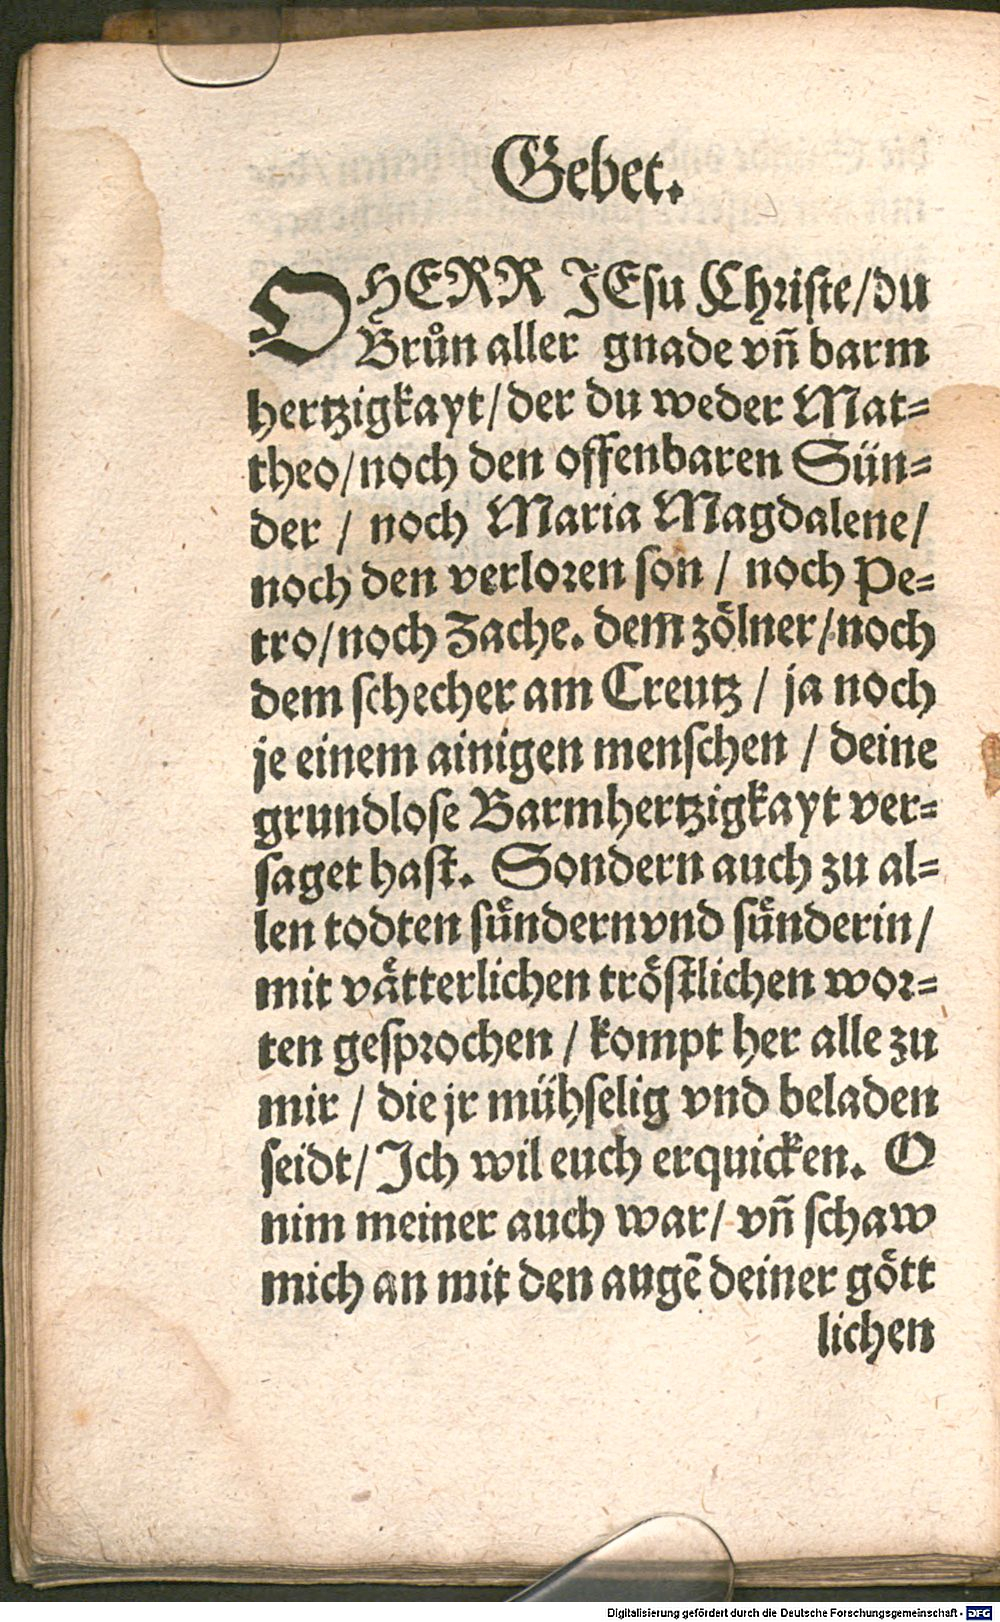 Gebet.
O HERR JEsu Christe/du
Brůn aller gnade vñ barm
hertzigkayt/der du weder Mat=
theo/noch den offenbaren Sün=
der / noch Maria Magdalene/
noch den verloꝛen son / noch Pe=
tro/noch Zache. dem zoͤlner/noch
dem schecher am Creutz / ja noch
je einem ainigen menschen / deine
grundlose Barmhertzigkayt ver=
saget hast. Sondern auch zu al=
len todten suͤndernvnd suͤnderin/
mit vaͤtterlichen troͤstlichen woꝛ=
ten gespꝛochen / kompt her alle zu
mir / die jr mühselig vnd beladen
seidt/ Ich wil euch erquicken. O
nim meiner auch war/ vñ schaw
mich an mit den augē deiner goͤtt
lichen
Digitalisierung gefördert durch die Deutsche Forschungsgemeinschaft - DFG